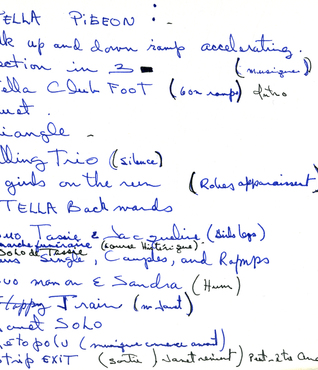 TELLA PiGEON :-
k up and down ramp accelerating.
ection in 3 (musique)
ella Club Foot (bon ramp) Intro
uet.
iangle -
lling Trio (Silence)
girls on the run (Robes apparaissent)
TELLA Backwards
uo Tassie & Jacqueline (Birds legs)
marche funéraire (course Hystérique).
Solo de Tassie
ns Single, Couples, and Ramps
uo manon & Sandra (Hum)
Train (m. Janet)
anet Solo
(musique avant)
trip EXIT (sortie, Janet revient)